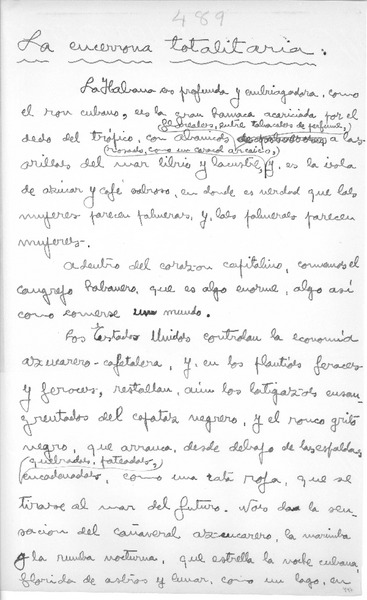 489
La encerrona totalitaria.
La Habana es profunda y embriagadora, como
el ron cubano, es la gran hamaca acariciada por el
dedo del trópico, con abanicos a las
orillas del mar librio y lacustre, y, es la isla
de azúcar y café sabroso, en donde es verdad que las
mujeres parecen palmeras, y, las palmeras parecen
mujeres.
Adentro del corazón capitalino, comamos el
cangrejo habanero, que es algo enorme, algo así
como comerse un mundo.
Los Estados Unidos controlan la economía
azucarero-cafetalera, y, en los plantíos feraces
y feroces, restallan, aún los latigazos ensan-
grentados del capataz negrero, y el ronco grito
negro, que arranca, desde debajo de las espaldas
quebradas, pateadas,
encadenadas, como una rata roja, que se
tirase al mar del futuro. Nos da la sen-
sación del cañaveral azucarero, la marimba
y la rumba nocturna, que estrella la noche cubana,
florida de astros y lunar, como un lago, en